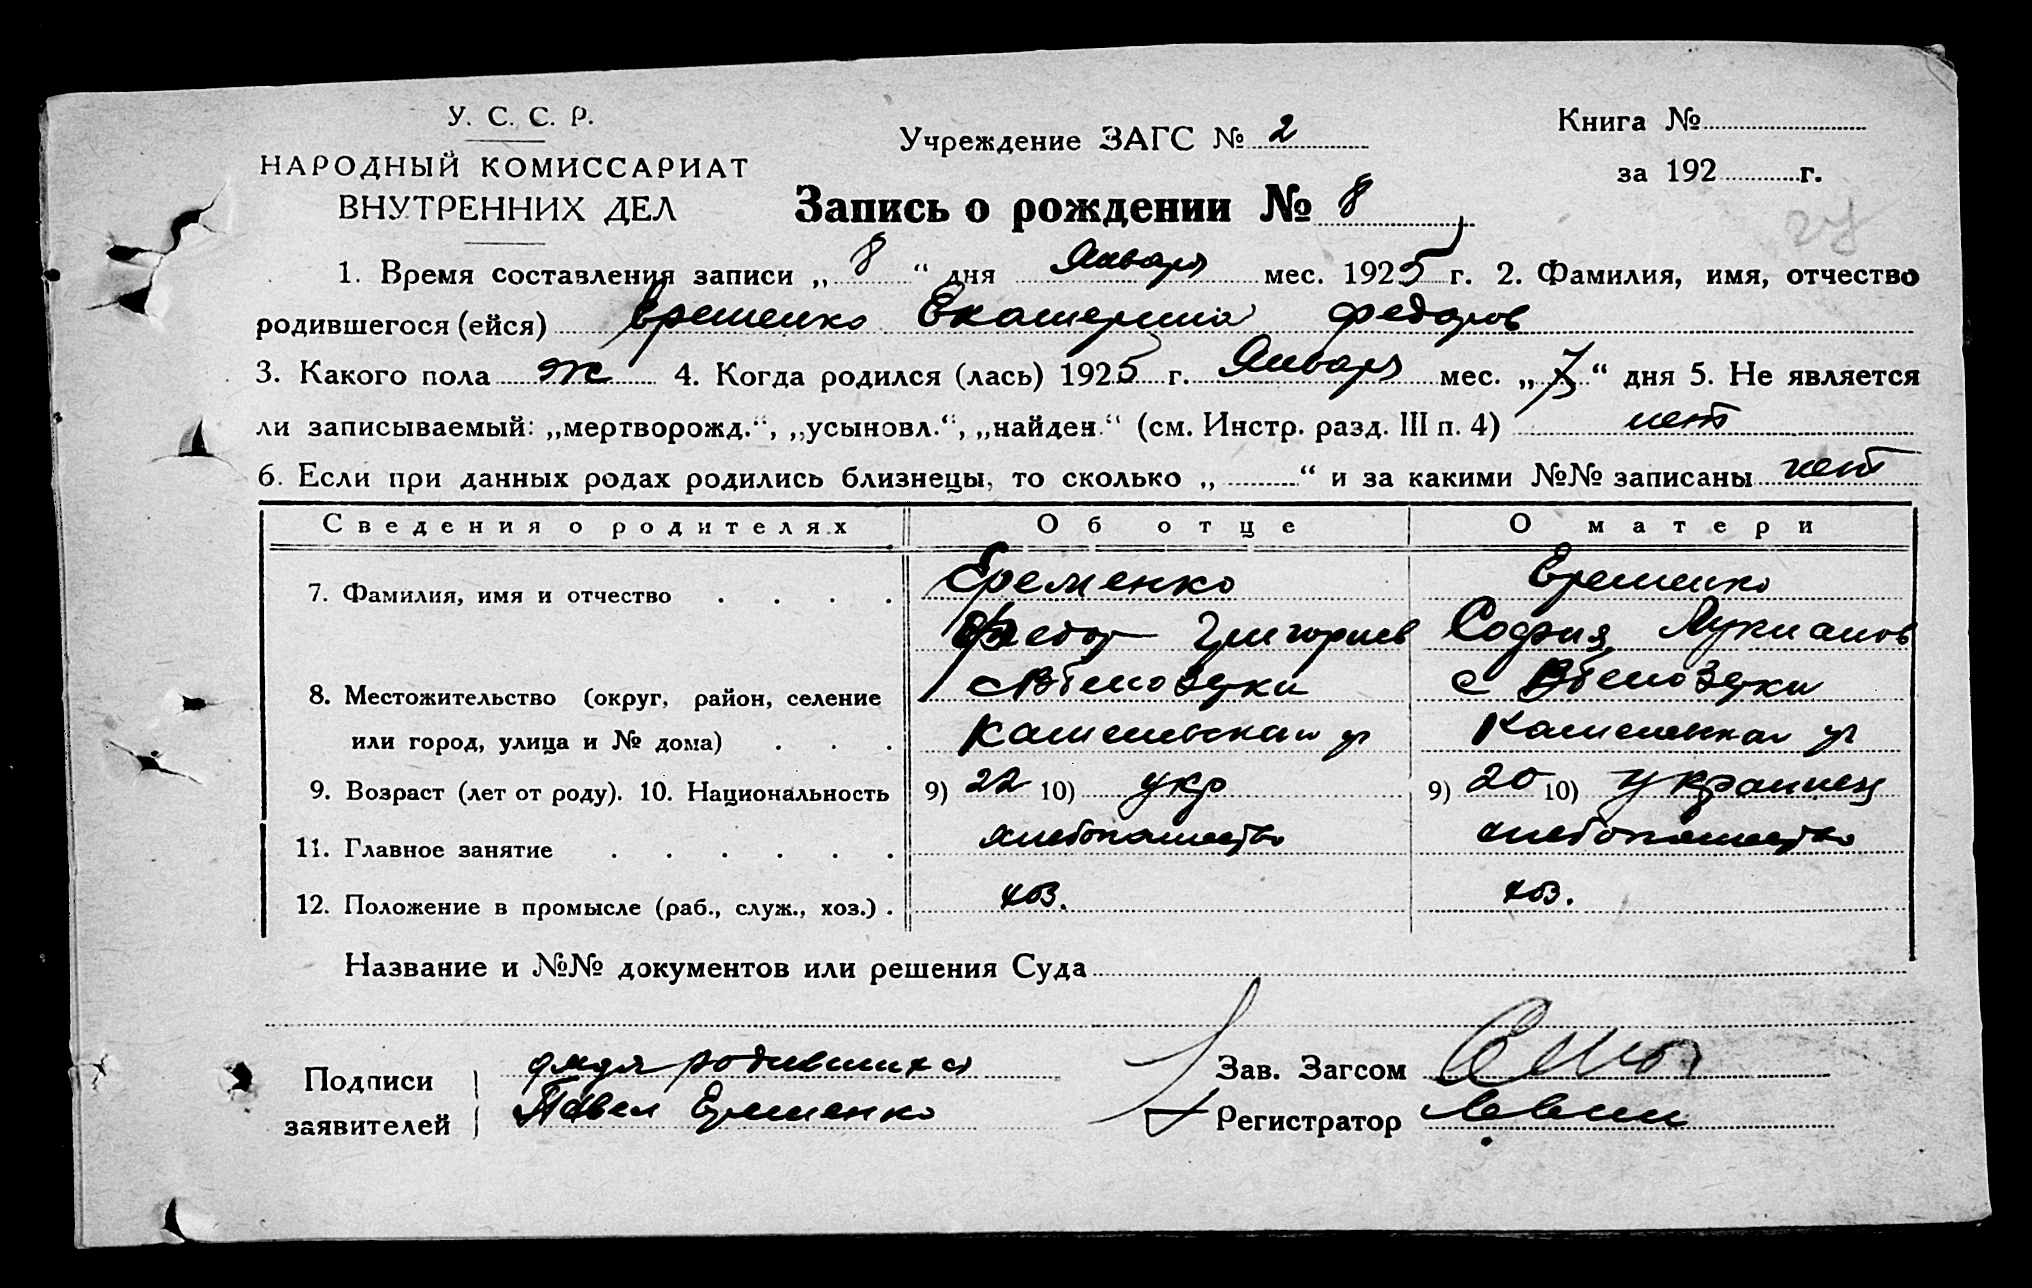 У. С. С. Р.
НАРОДНЫЙ КОМИССАРИАТ
ВНУТРЕННИХ ДЕЛ
Учреждение ЗАГС № 2
Книга №
за 192 г.
Запись о рождении № 8
1. Время составления записи „ 8 “ дня Января мес. 1925 г. 2. Фамилия, имя, отчество
родившегося (ейся) Еременко Екатерина Федоров
3. Какого пола ж 4. Когда родился (лась) 1925 г. Января мес. „ 7 “ дня 5. Не является
ли записываемый: „мертворожд.“, „усыновл.“, „найден.“ (см. Инстр. разд. III п. 4) нет
6. Если при данных родах родились близнецы, то сколько „ “ и за какими №№ записаны нет
Сведения о родителях Об отце О матери
7. Фамилия, имя и отчество Еременко Еременко
Федор Григориев София Лукианов
8. Местожительство (округ, район, селение с с
или город, улица и № дома) ул ул
9. Возраст (лет от роду). 10. Национальность 9) 22 10) укр 9) 20 10) украинец
11. Главное занятие хлебопашество хлебопашество
12. Положение в промысле (раб., служ., хоз.)
Название и №№ документов или решения Суда
Подписи дядя родившихся
заявителей Павел Еременко
Зав. Загсом
Регистратор Левин